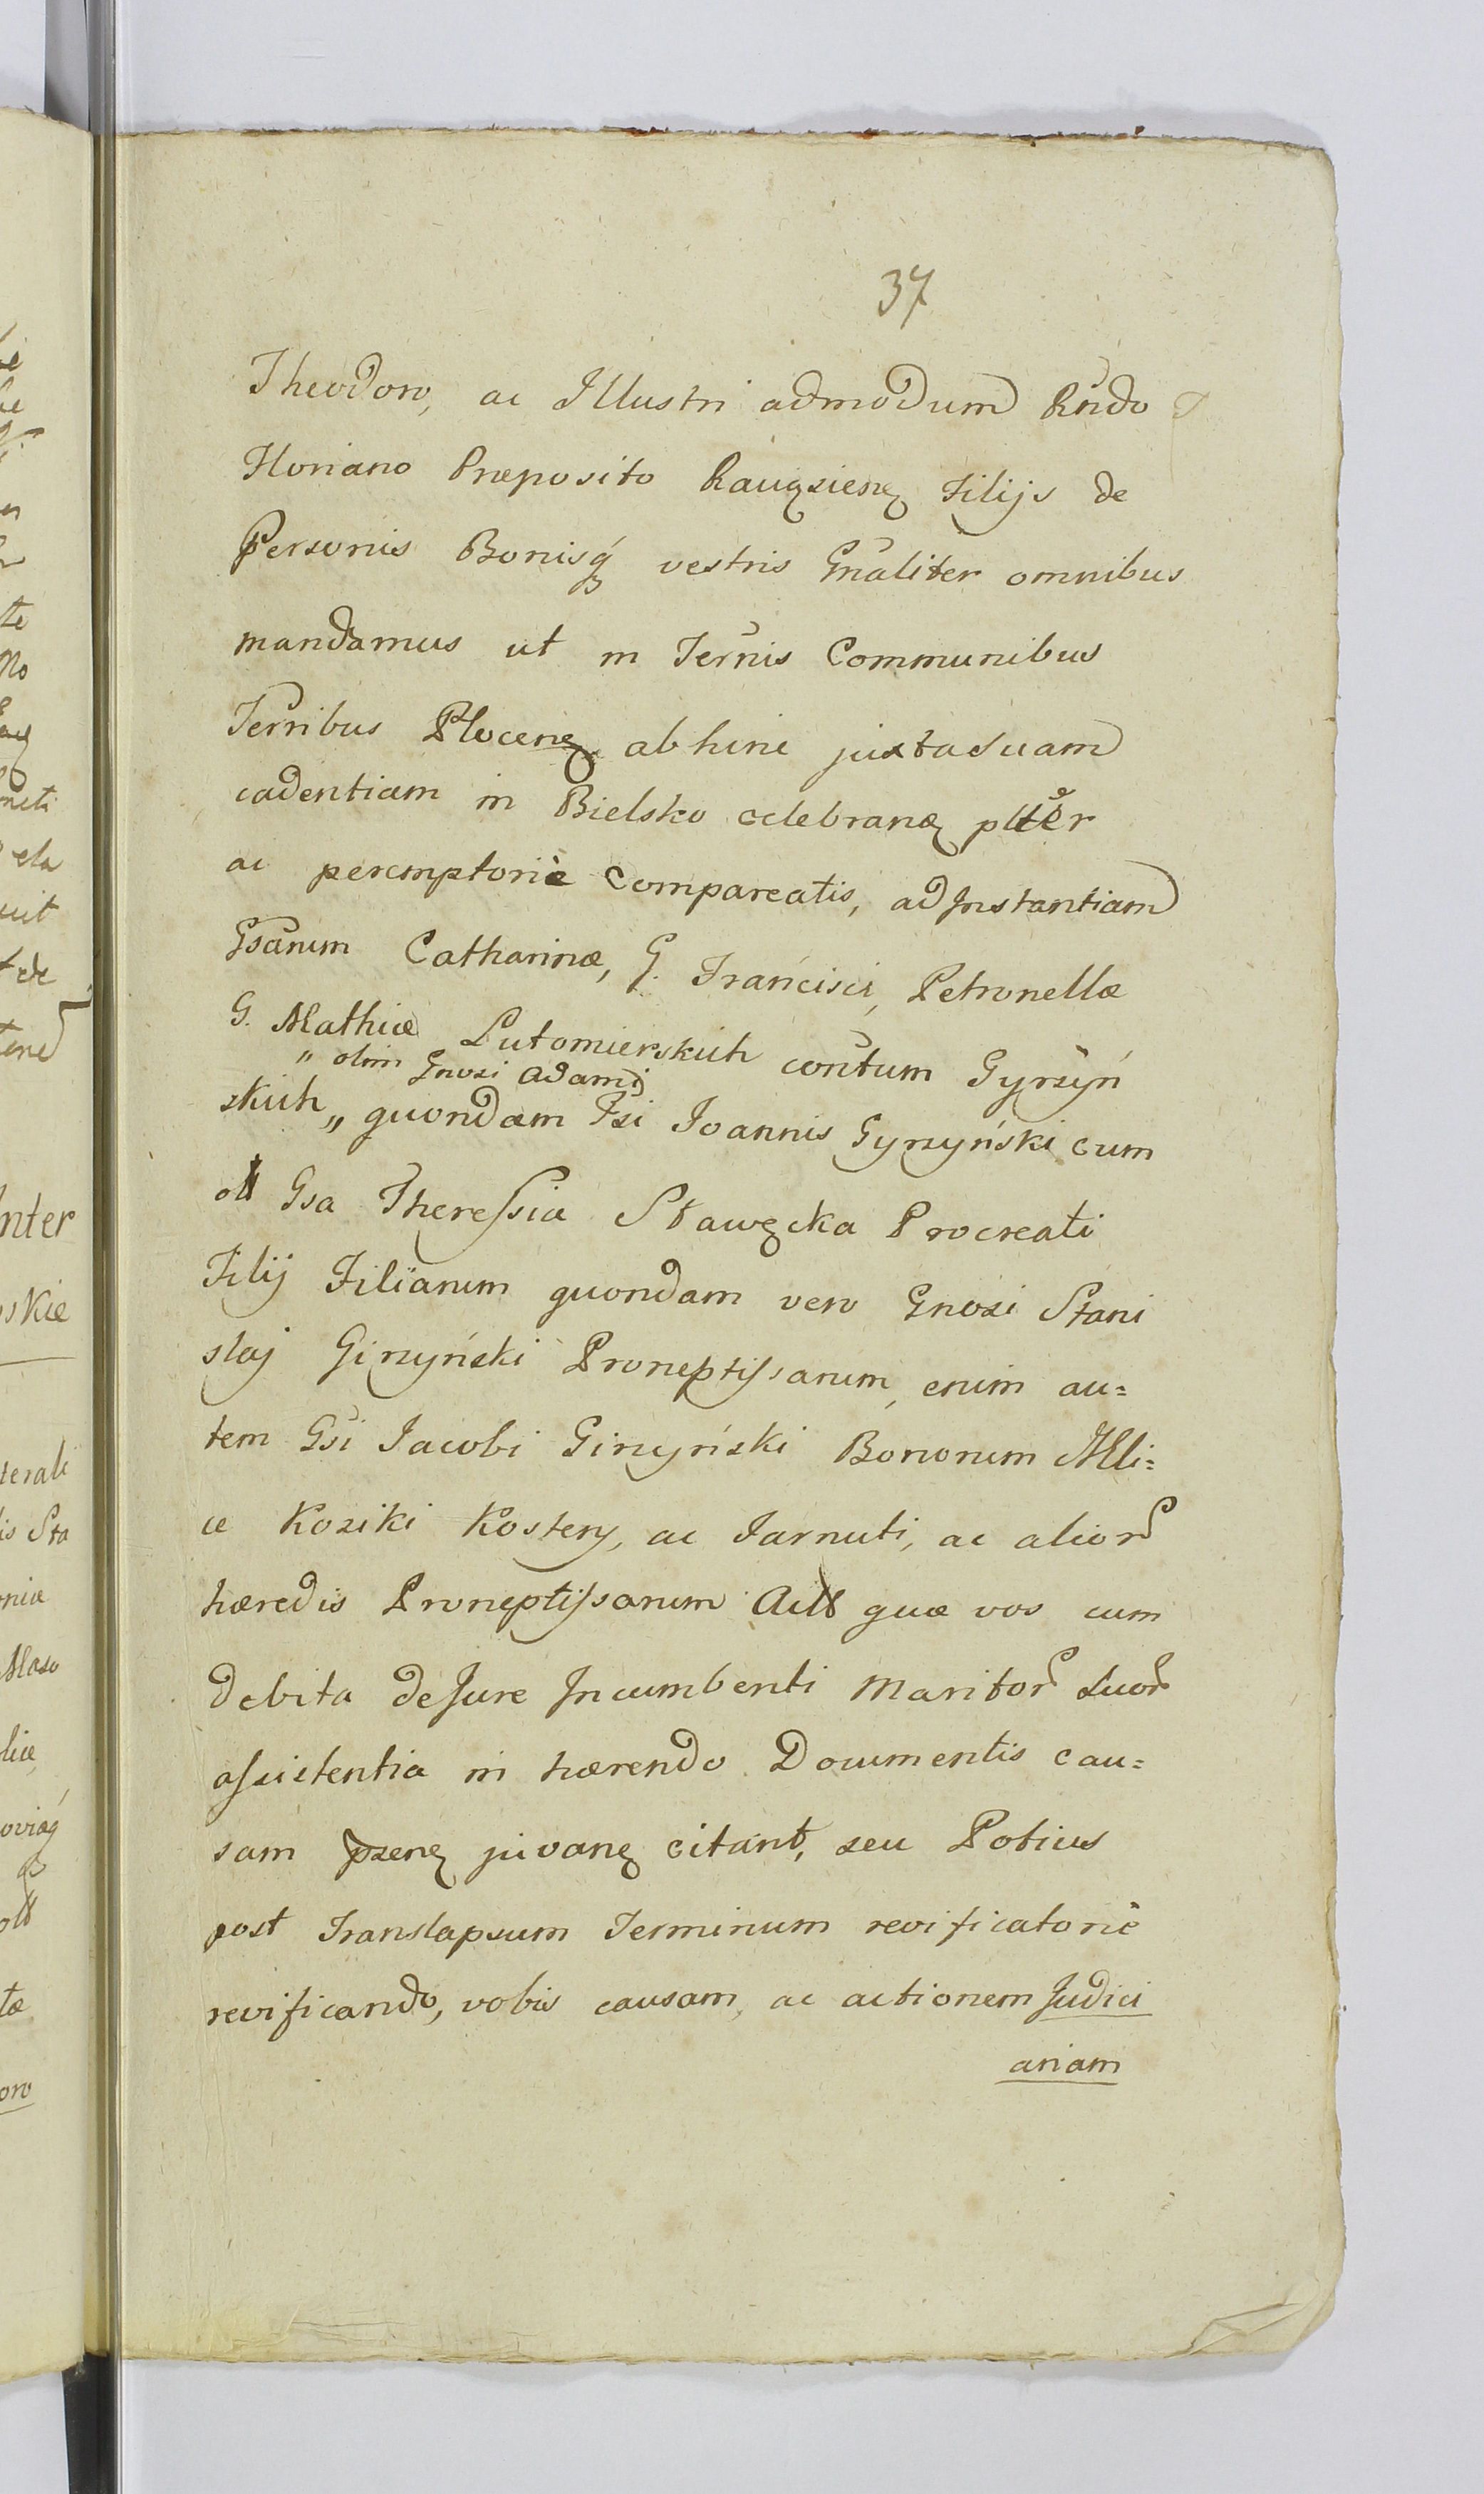 37
Theodoro, ac Illustri admodum Rndo
Floriano Præposito Raucziens Filijs de
Personis Bonisq vestris Gnaliter omnibus
mandamus ut in Ternis Communibus
Terribus Plocens abhinc juxta suam
cadentiam in Bielsko celebran plter
ac peremptorie Compareatis, ad Instantiam
Gsarum Catharinæ, G. Francisci, Petronellæ
G. Mathiæ Lutomierskich contum Gyrzyń
" olim Gnosi Adami
skich „ quondam Gsi Joannis Gyrzyński cum
oll Gsa Theressia Sławęcka Procreati
Filij Filiarum quondam vero Gnosi Stani
slaj Girzyński Proneptissarum, enim au=
tem Gsi Jacobi Girzyński Bonorum Mli=
ce Koziki Kostery, ac Jarnuti, ac alior
hæredis Proneptissarum Act quæ vos cum
Debita de Jure Incumbenti Maritor Suor
assistentia in hærendo Documentis cau=
sam pzen juvan citant, seu Potius
post Translapsum Terminum revificatorie
revificando, vobis causam, ac actionem Judici
ariam